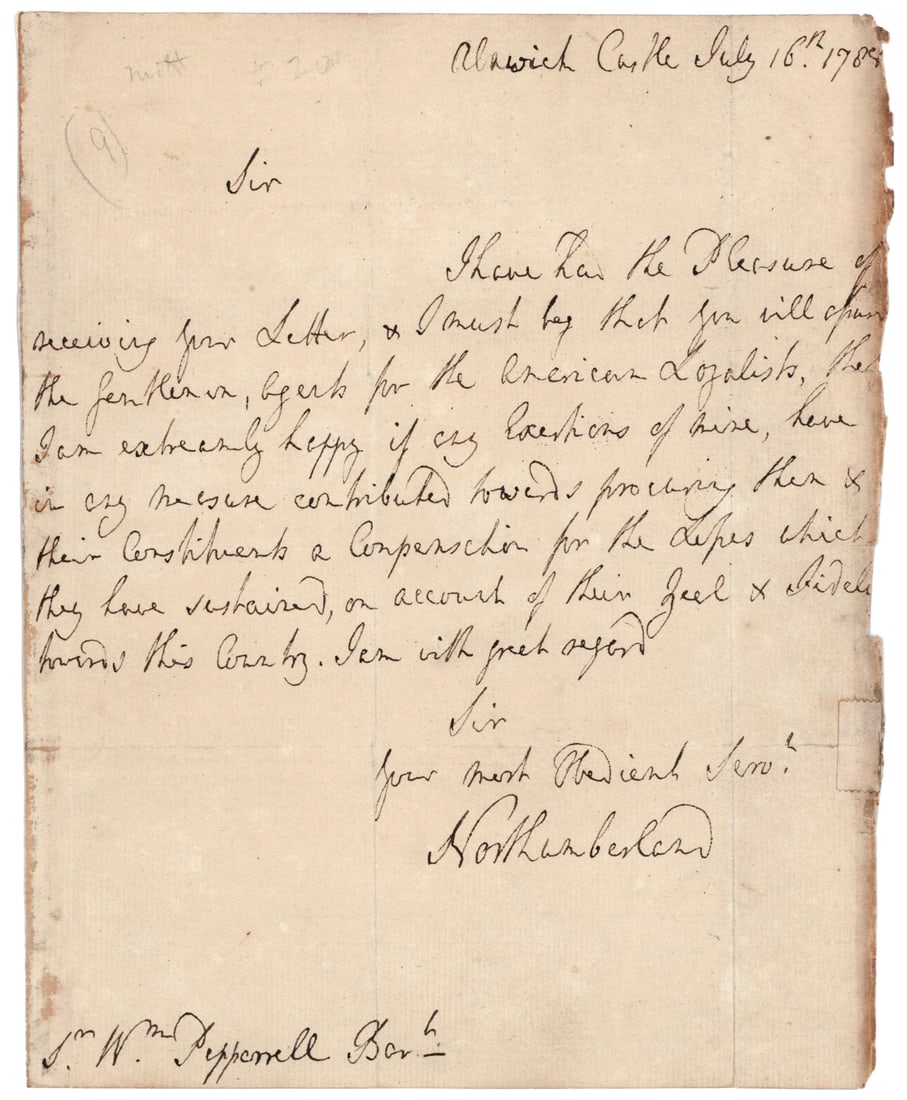 Alnwick Castle July 16.th 1788
Sir
I have had the Pleasure of
receiving your Letter, & I must beg that you will assure
the Gentlemen, Agents for the American Loyalists, that
I am extreamly happy if any Exertions of mine, have
in any measure contributed towards procuring them &
their Constituents a Compensation for the Losses which
they have sustained, on account of their Zeal & Fideli
towards this Country. I am with great regard
Sir
Your most Obedient Serv.t
Northumberland
Sr. Wm. Pepperrell Bart.
(9)